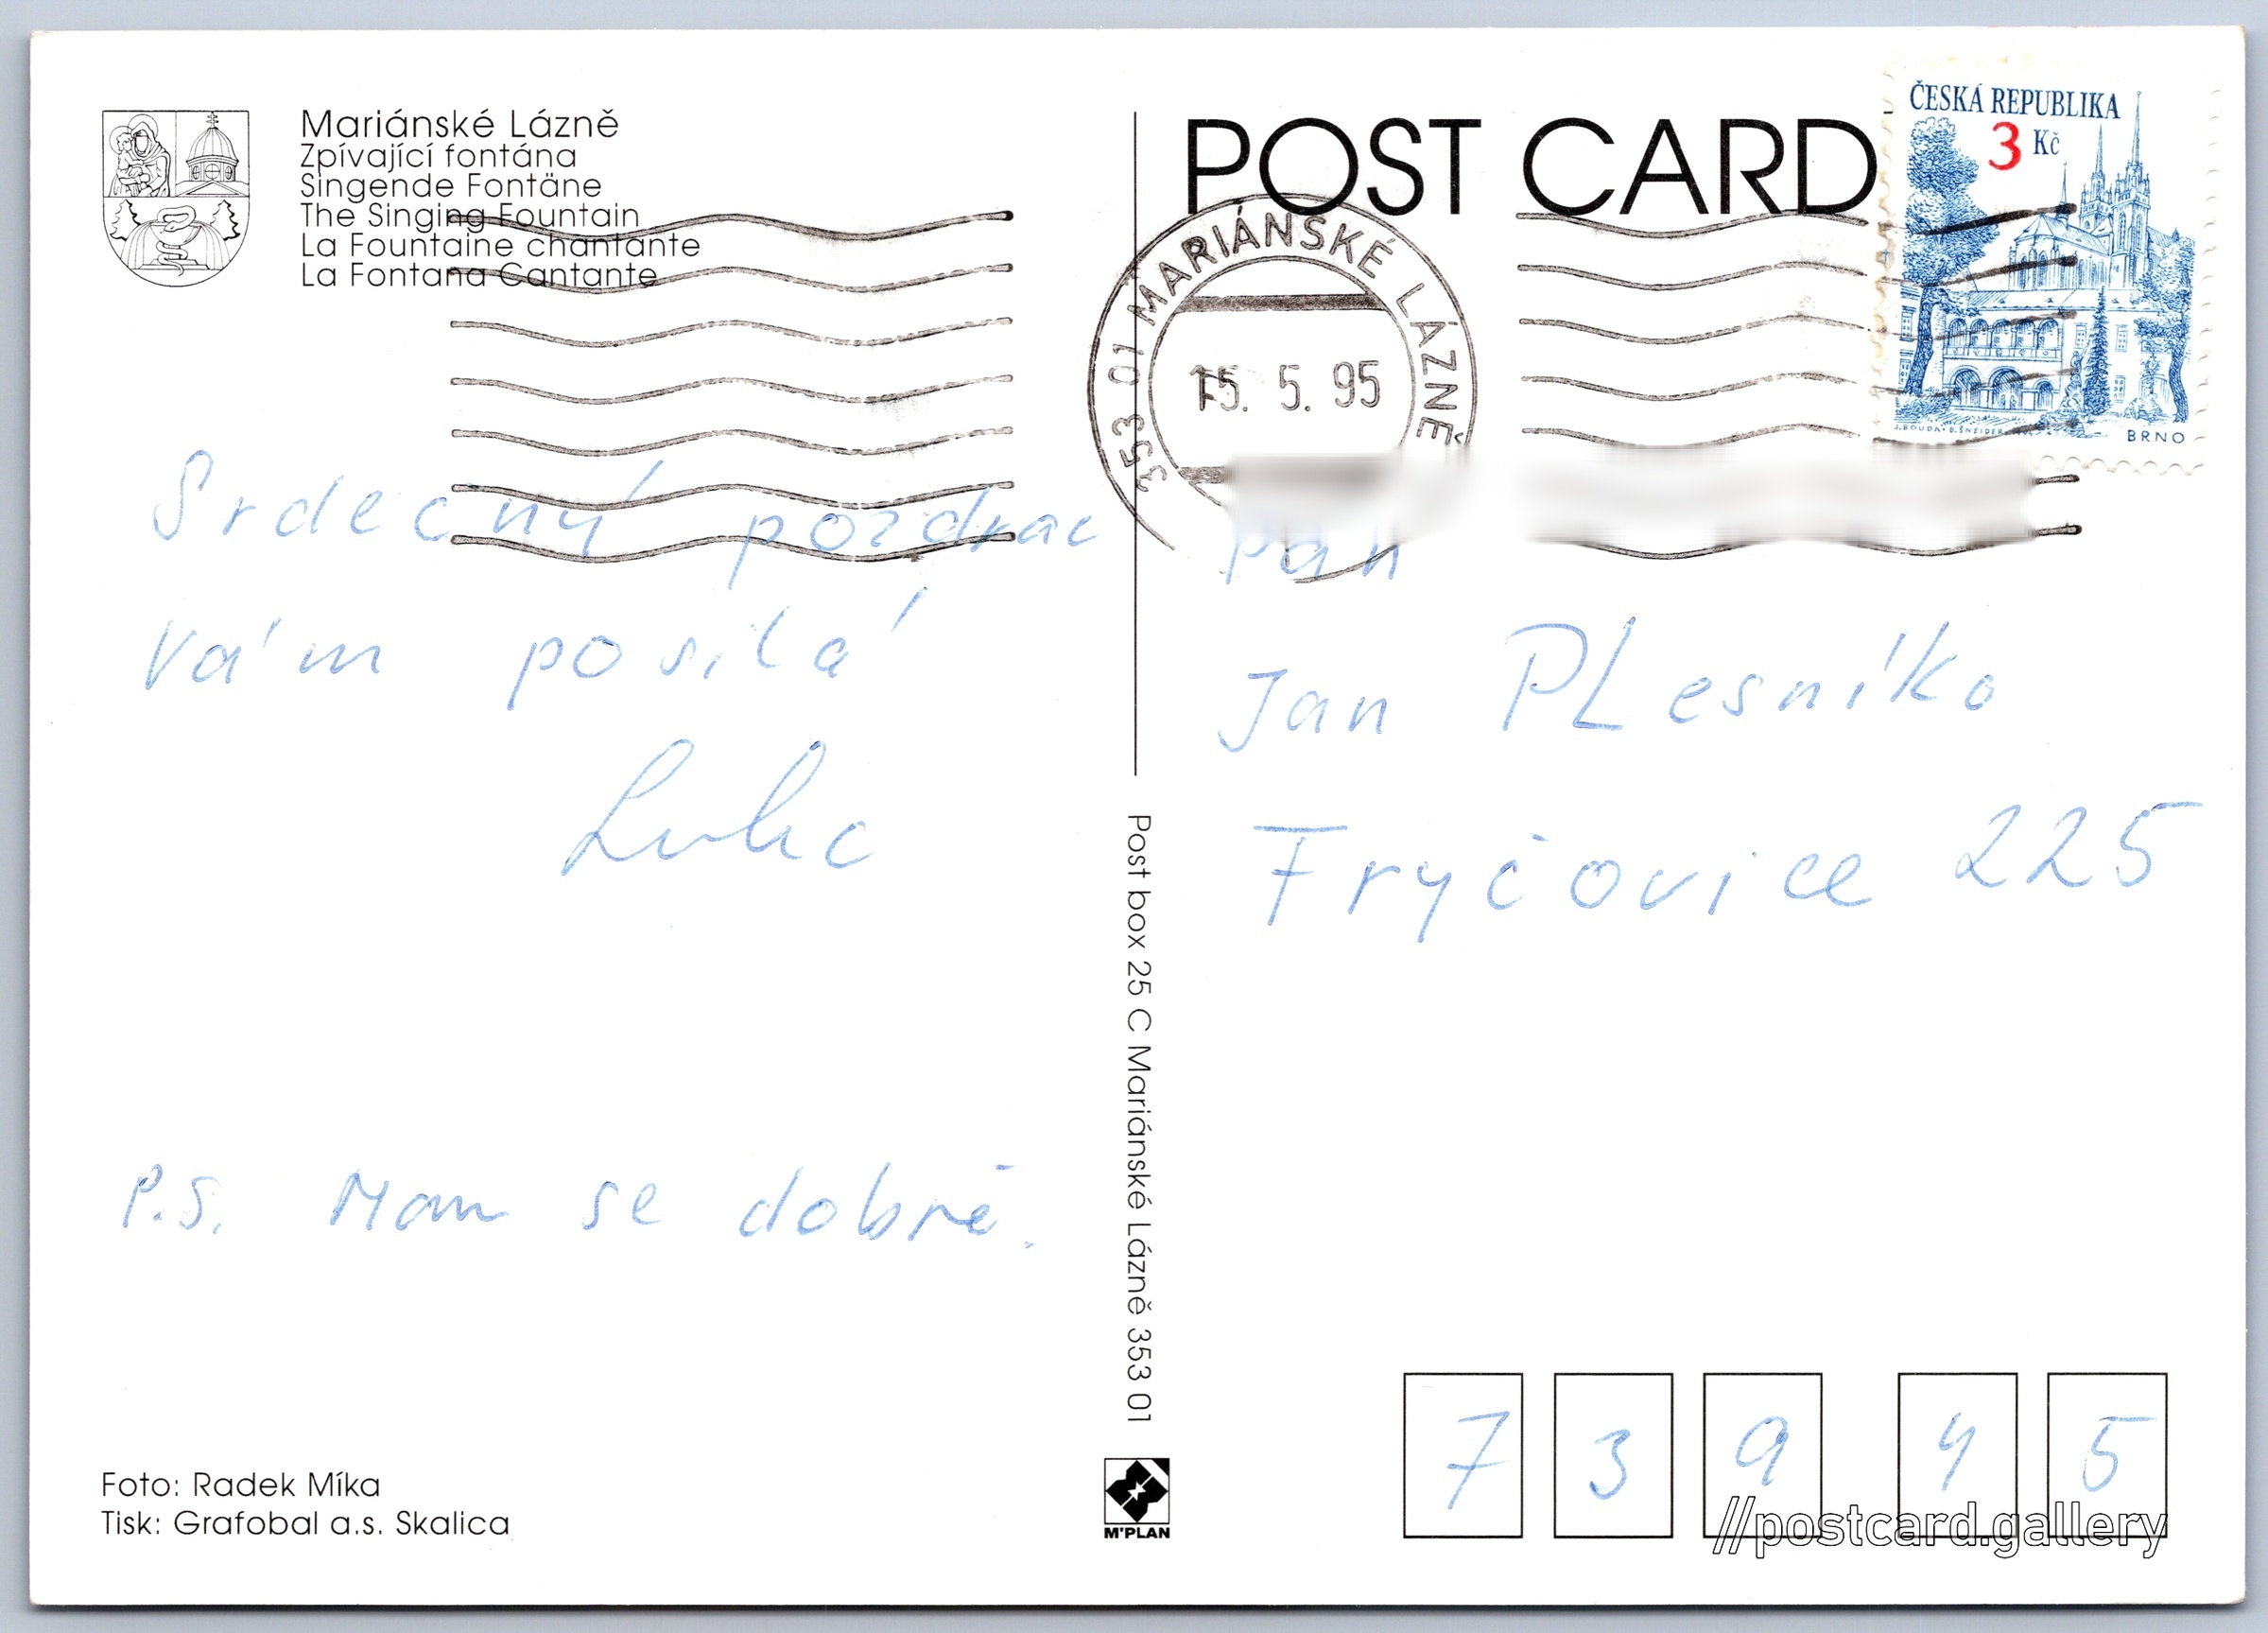 Mariánské Lázně
Zpívající fontána
Singende Fontäne
The Singing Fountain
La Fountaine chantante
La Fontana Cantante
POST CARD
ČESKÁ REPUBLIKA
3 Kč
J. BOUDA - B. ŠNEIDER
BRNO
353 01 MARIÁNSKÉ LÁZNĚ
15. 5. 95
Srdečný pozdrav
Vám posílá
P.S. Mam se dobrě.
Pan
Jan PLesníko
Fryčovice 225
739 45
Post box 25 C Mariánské Lázně 353 01
M'PLAN
Foto: Radek Míka
Tisk: Grafobal a.s. Skalica
//postcard.gallery